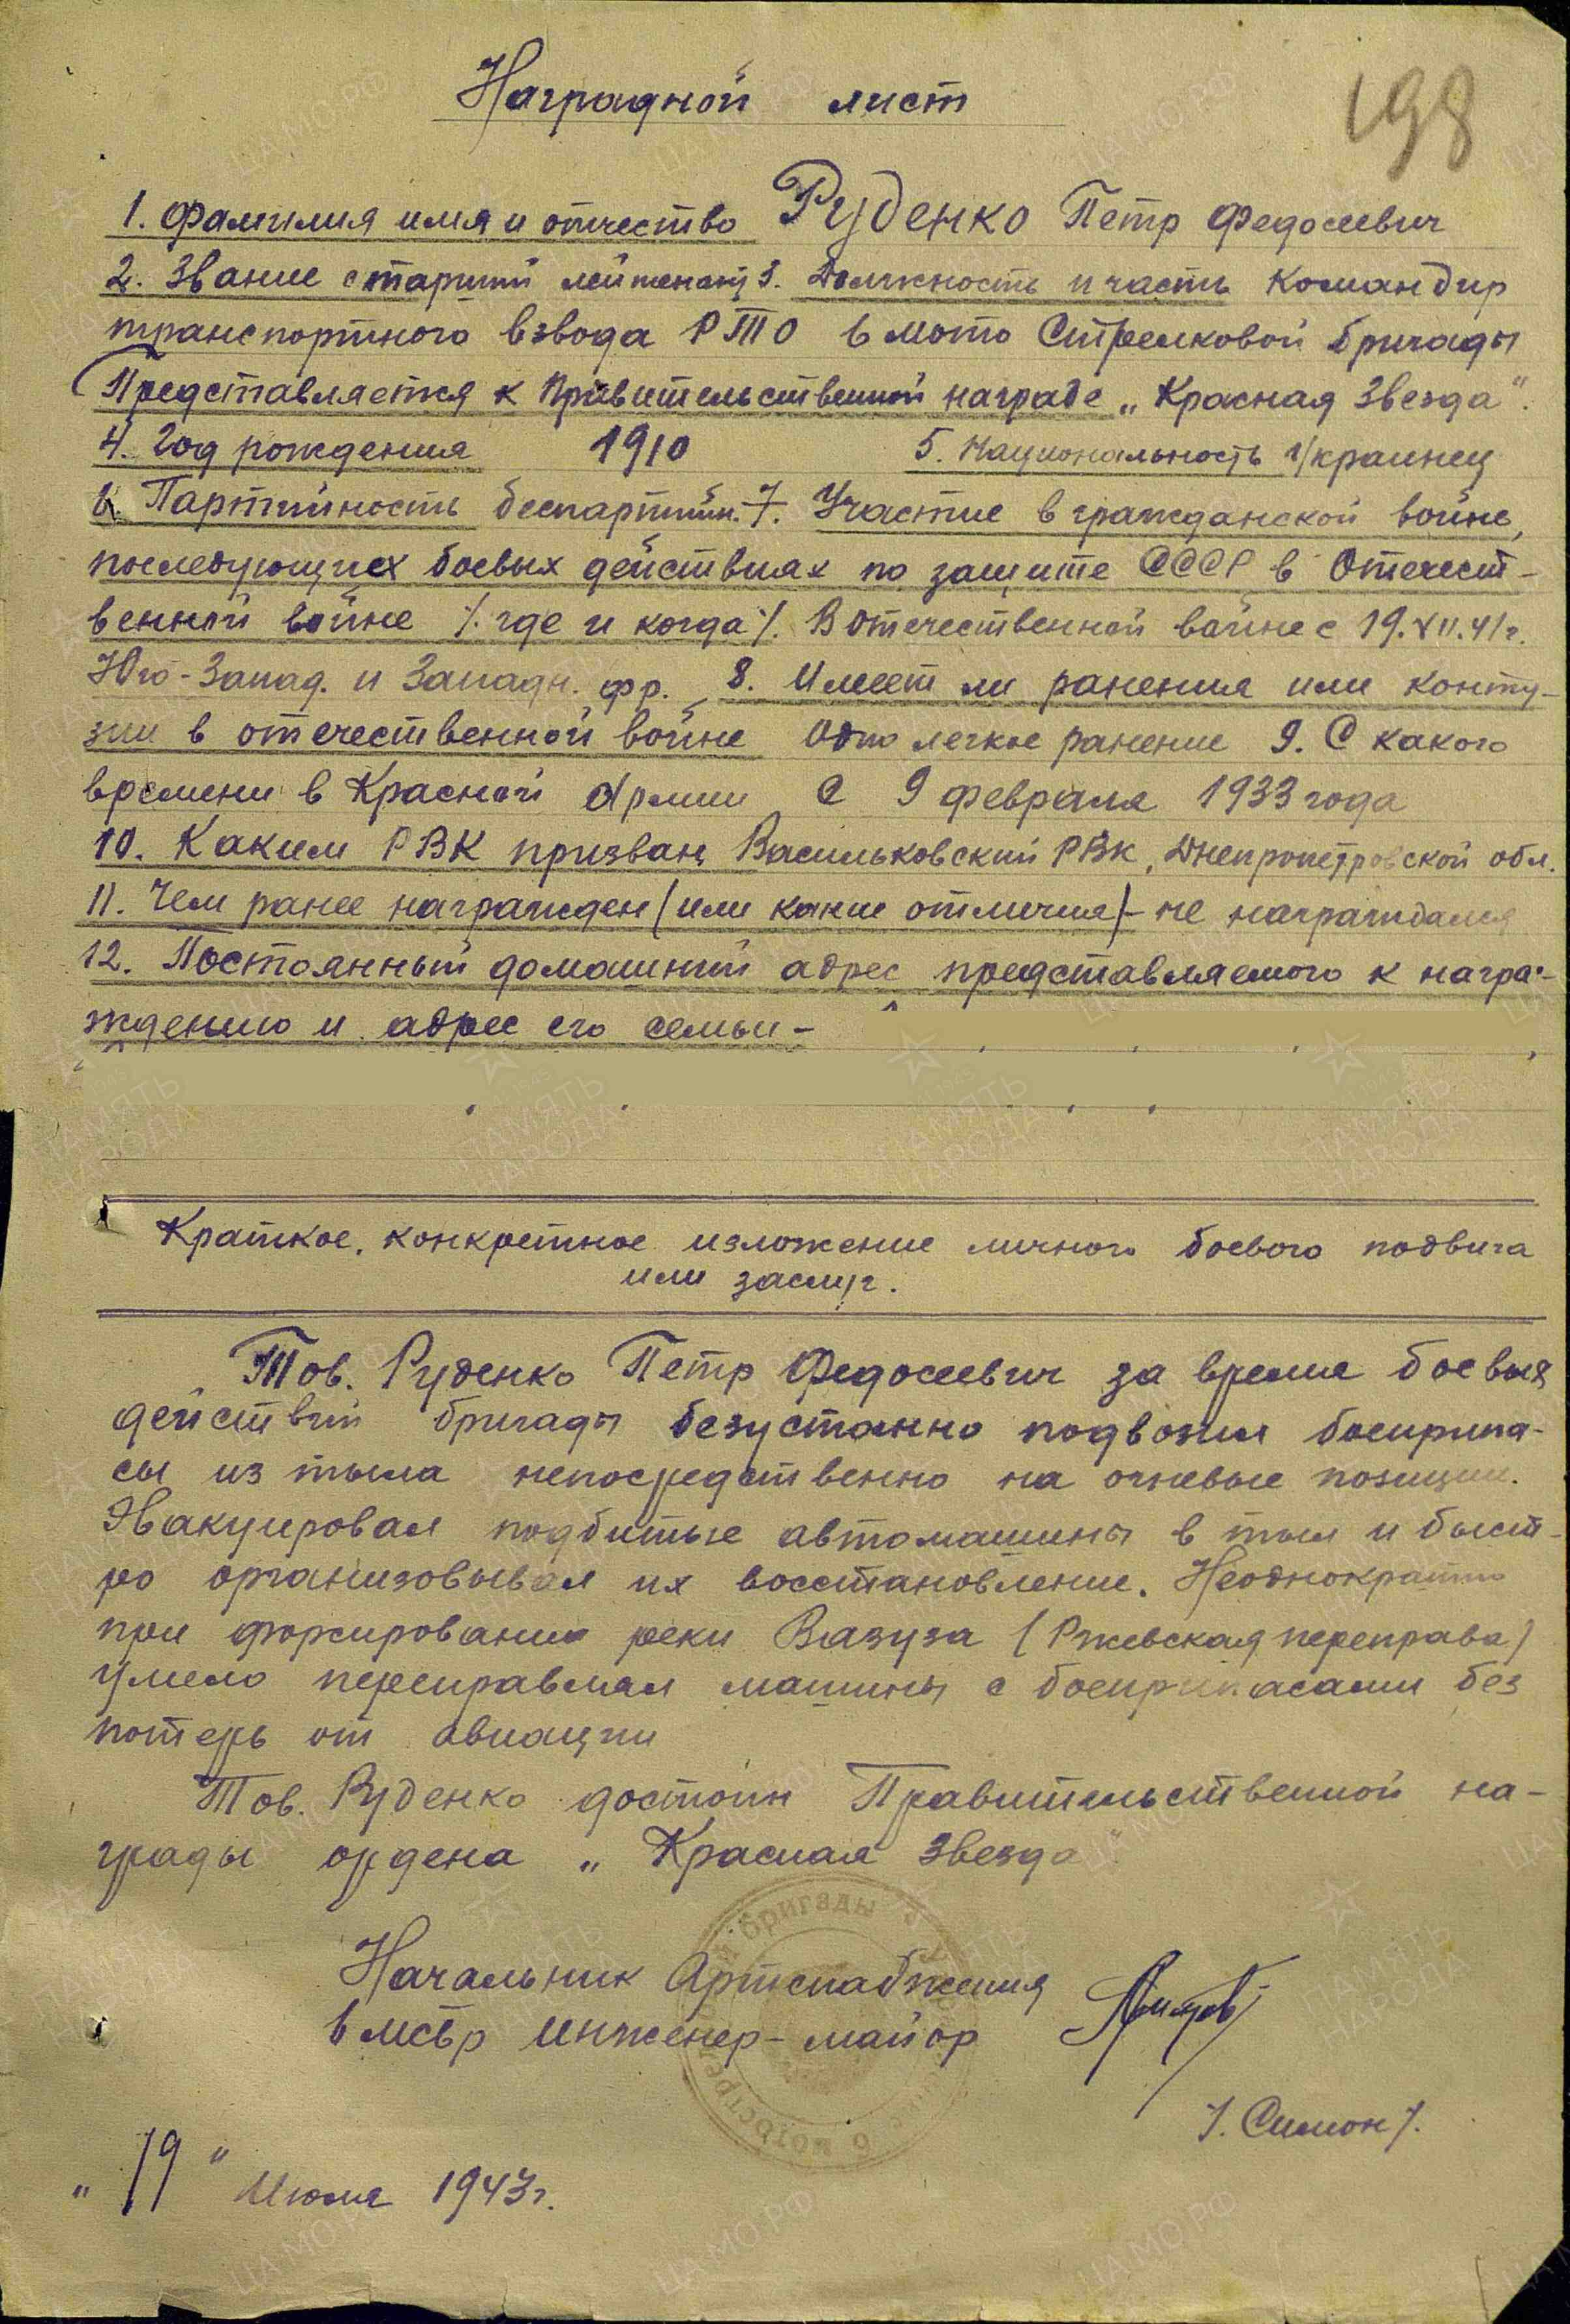 Наградной лист
198
1. Фамилия имя и отчество Руденко Петр Федосеевич
2. Звание старший лейтенант 3. Должность и часть Командир
транспортного взвода РТО 6 мото Стрелковой бригады
Представляется к Правительственной награде „Красная Звезда".
4. Год рождения 1910 5. Национальность Украинец
6. Партийность беспартийн. 7. Участие в гражданской войне,
последующих боевых действиях по защите СССР в Отечест-
венной войне /. где и когда /. В отечественной войне с 19.XII.41г.
Юго-Запад. и Западн. фр. 8. Имеет ли ранения или конту-
зии в отечественной войне Одно легкое ранение 9. С какого
времени в Красной Армии С 9 февраля 1933 года
10. Каким РВК призван Васильковский РВК, Днепропетровской обл.
11. Чем ранее награжден (или какие отличия) - не награждался
12. Постоянный домашний адрес представляемого к награ-
ждению и адрес его семьи -
Краткое, конкретное изложение личного боевого подвига
или заслуг.
Тов. Руденко Петр Федосеевич за время боевых
действий бригады безустанно подвозил боеприпа-
сы из тыла непосредственно на огневые позиции.
Эвакуировал подбитые автомашины в тыл и быст-
ро организовывал их восстановление. Неоднократно
при форсировании реки Вазуза (Ржевская переправа)
умело переправлял машины с боеприпасами без
потерь от авиации
Тов. Руденко достоин Правительственной на-
грады ордена „Красная Звезда"
Начальник Артснабжения
6 мсбр инженер-майор
/. Симон /.
„19" Июля 1943г.
6 мотострелковой бригады